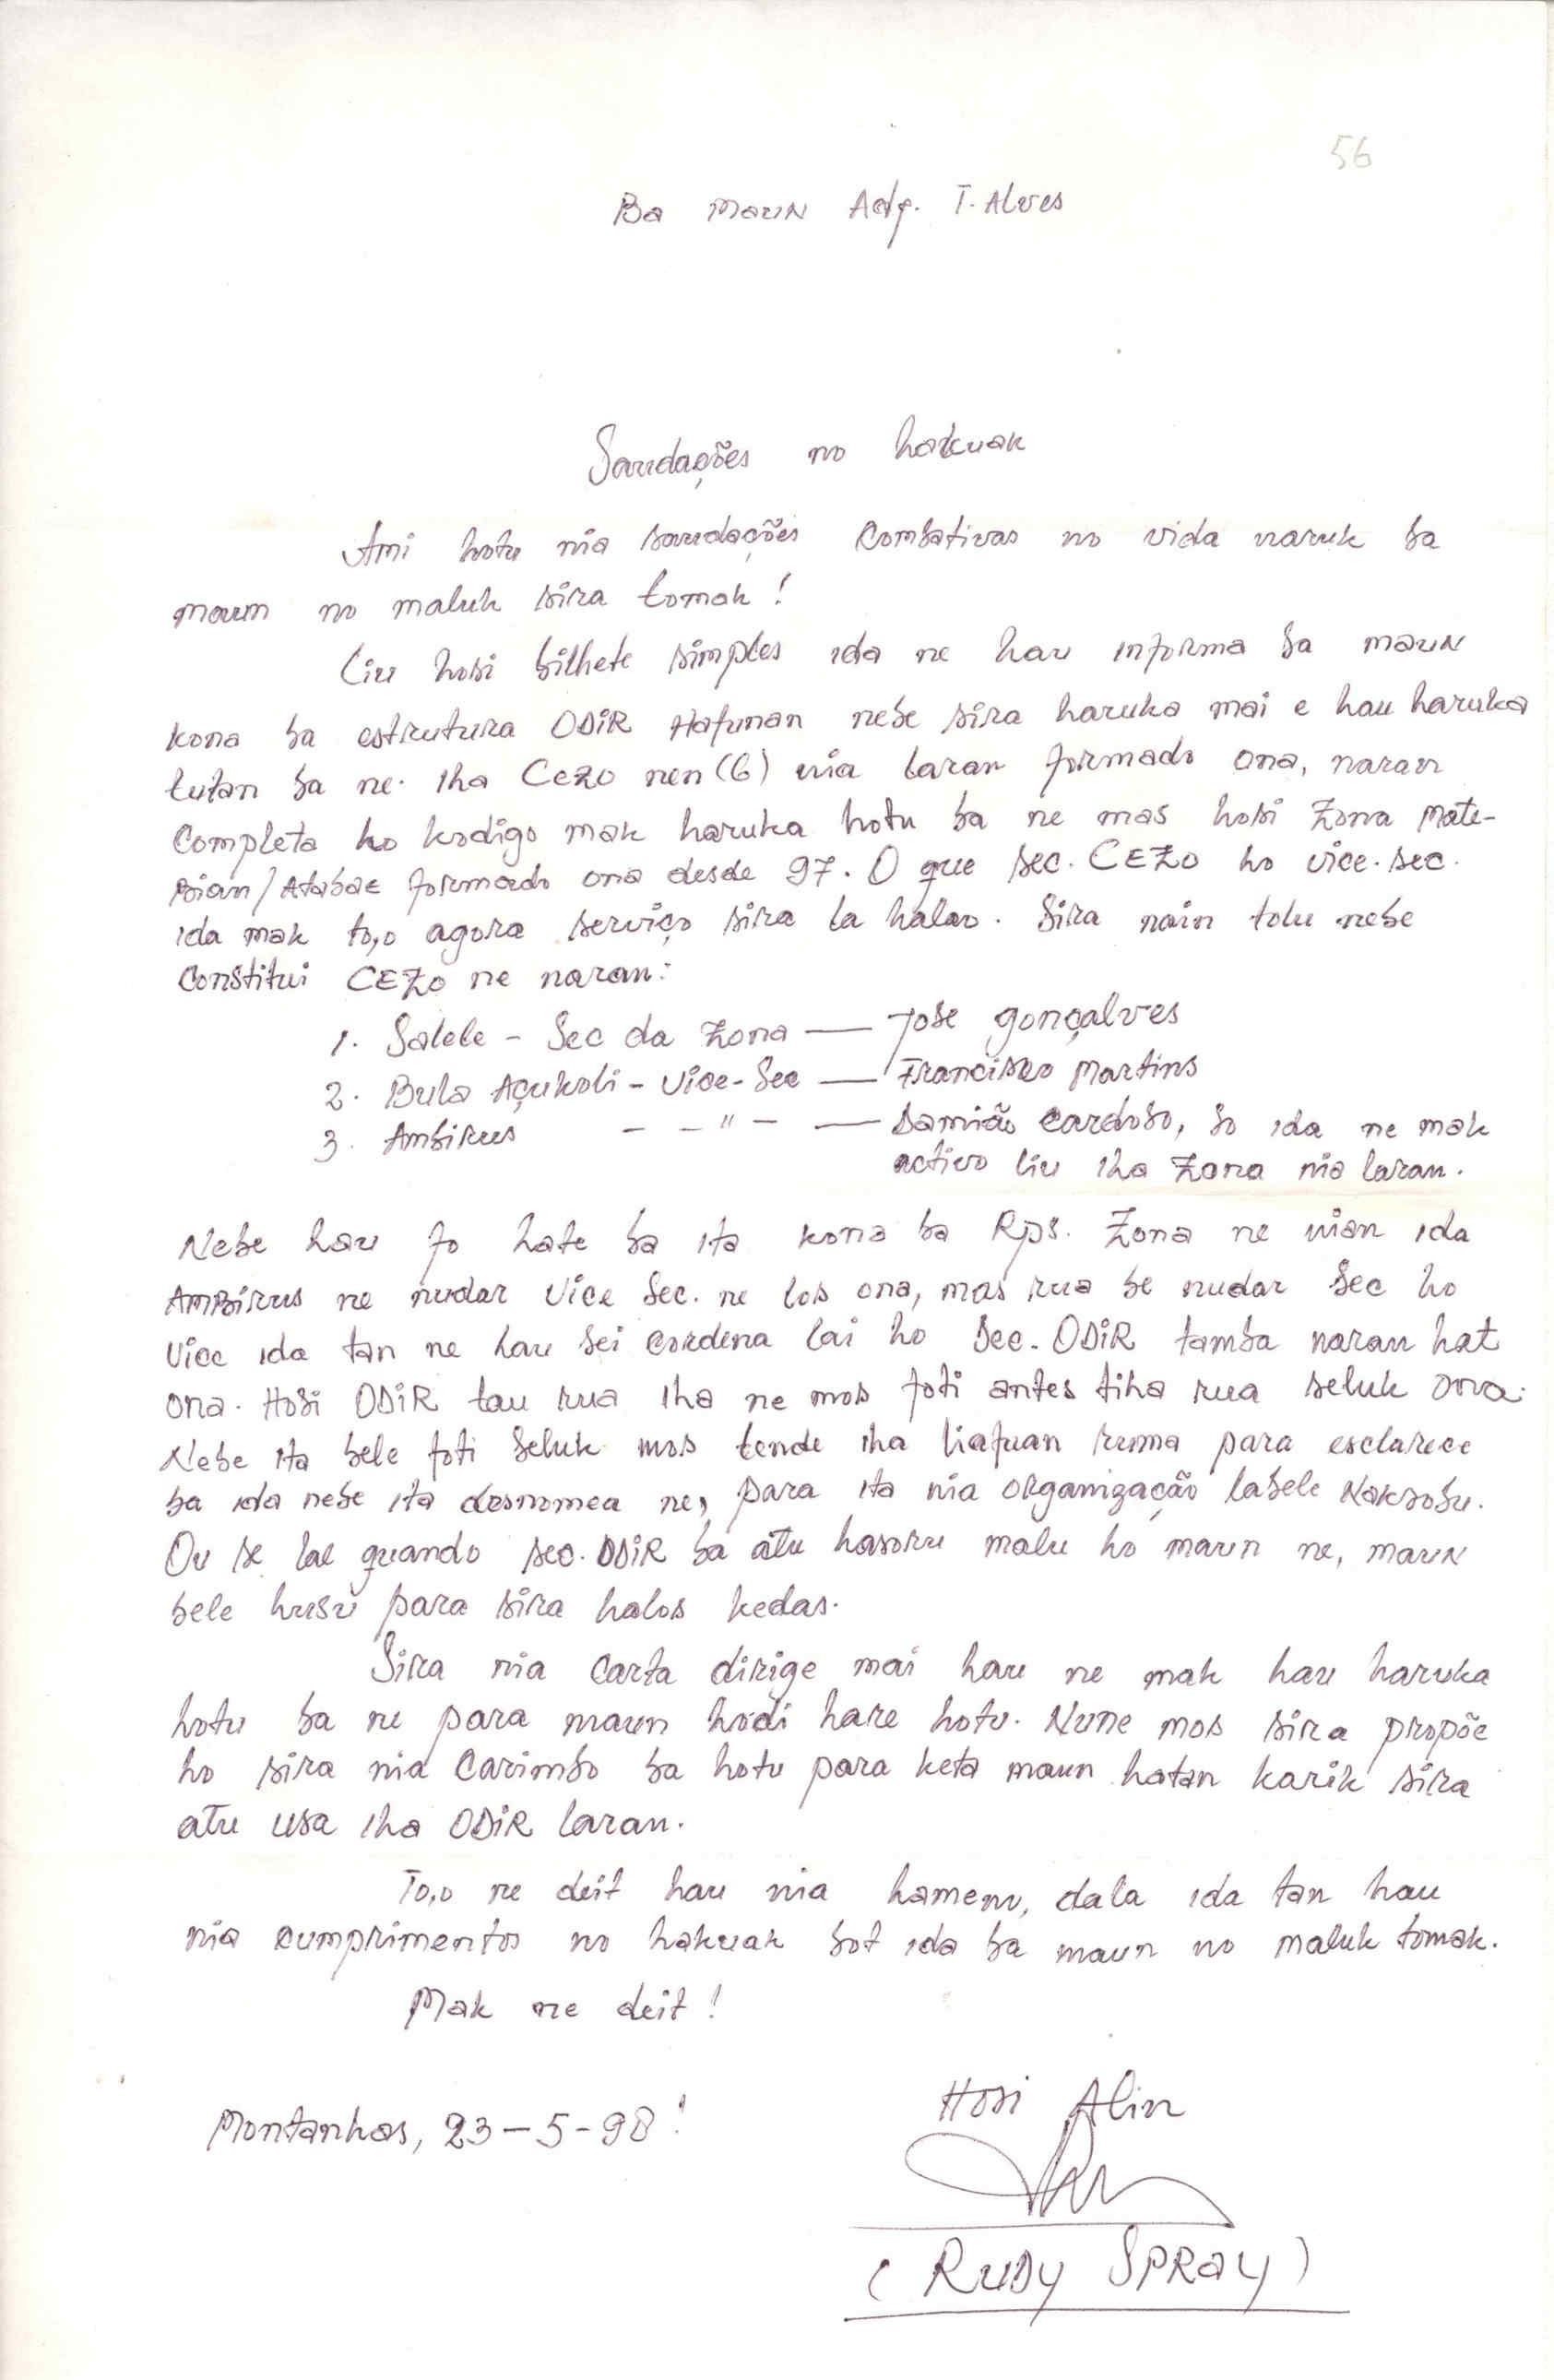 56
Ba Maun Adj. T. Alves
Saudações no hakuak
Ami hotu nia saudações combativas no vida naruk ba
maun no maluk sira tomak!
Liu hosi bilhete simples ida ne hau informa ba maun
kona ba estrutura ODIR Hafunan nebe sira haruka mai e hau haruka
tutan ba ne. Iha CEZO nen (6) nia laran formado ona, naran
completa ho kodigo mak haruka hotu ba ne mas hosi Zona Mate-
bian/Atabae formado ona desde 97. O que sec. CEZO ho vice-sec.
ida mak to,o agora serviço sira la halao. Sira nain tolu nebe
constitui CEZO ne naran:
1. Salele - Sec da Zona — Jose Gonçalves
2. Bula Açukoli - Vice-Sec — Francisko Martins
3. Ambirus - - " - — Damião Cardoso, so ida ne mak
activo liu iha Zona nia laran.
Nebe hau fo hate ba ita kona ba Rps. Zona ne nian ida
Ambirus ne nudar Vice Sec. ne los ona, mas rua be nudar Sec ho
Vice ida tan ne hau sei cordena lai ho Sec. ODIR tamba naran hat
ona. Hosi ODIR tau rua iha ne mos foti antes tiha rua seluk ona.
Nebe ita bele foti seluk mos tende iha liafuan ruma para esclarece
ba ida nebe ita desnomea ne, para ita nia organização labele naksobu.
Ou se lae quando sec. ODIR ba atu hasoru malu ho maun ne, maun
bele husu para sira halos kedas.
Sira nia carta dirige mai hau ne mak hau haruka
hotu ba ne para maun hodi hare hotu. Nune mos sira propõe
ho sira nia carimbo ba hotu para keta maun hatan karik sira
atu usa iha ODIR laran.
To,o ne deit hau nia hamenu, dala ida tan hau
nia cumprimentos no hakuak bot ida ba maun no maluk tomak.
Mak ne deit!
Montanhas, 23-5-98!
Hosi Alin
(RUDY SPRAY)